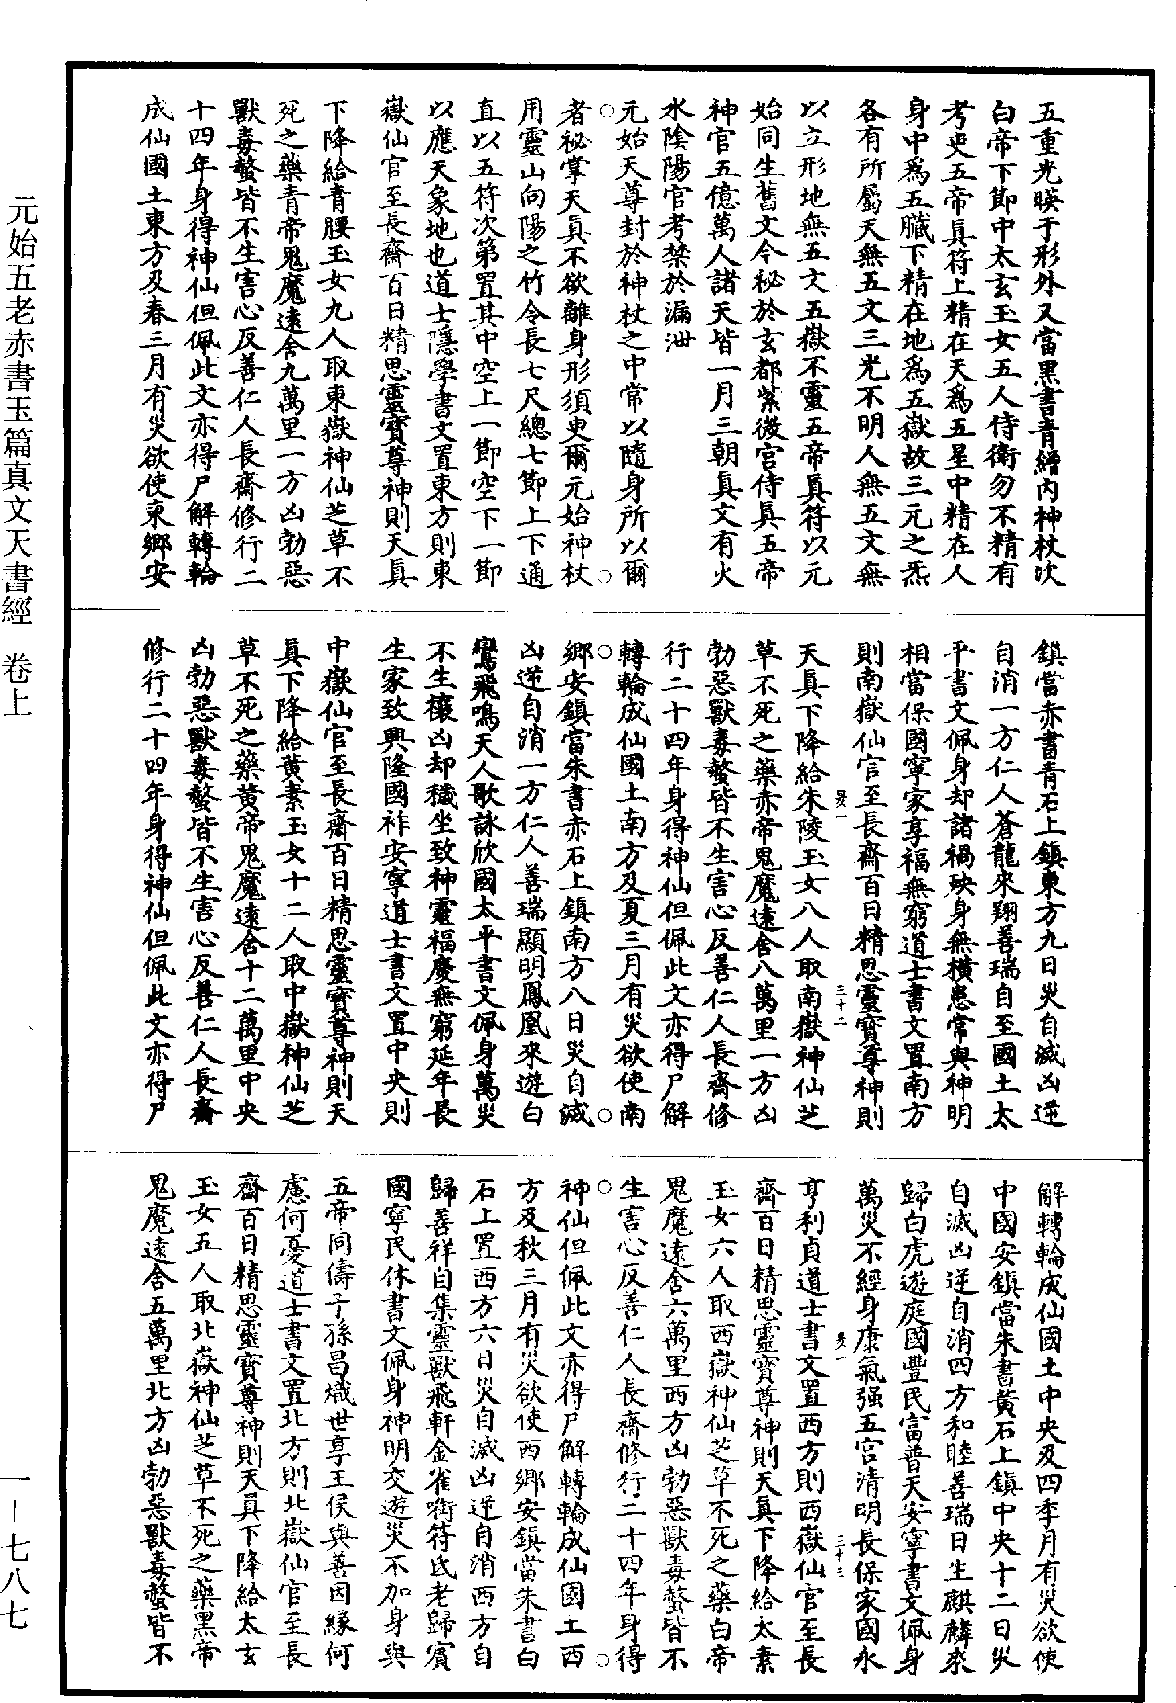 五重光暎于形外又當黑書青繒内神杖次
白帝下節中太玄玉女五人侍衛勿不精有
考吏五帝真符上精在天爲五星中精在人
身中爲五臟下精在地爲五嶽故三元之炁
各有所屬天無五文三光不明人無五文無
以立形地無五文五嶽不靈五帝真符以元
始同生舊文今秘於玄都紫微宮侍真五帝
神官五億萬人諸天皆一月三朝真文有火
水陰陽官考禁於漏泄
元始天尊封於神杖之中常以隨身所以爾
者秘掌天真不欲離身形須臾爾元始神杖
用靈山向陽之竹令長七尺總七節上下通
直以五符次第置其中空上一節空下一節
以應天象地也道士隱學書文置東方則東
嶽仙官至長齋百日精思靈寶尊神則天真
下降給青腰玉女九人取東嶽神仙芝草不
死之藥青帝鬼魔遠舍九萬里一方凶勃惡
獸毒螫皆不生害心反善仁人長齋修行二
十四年身得神仙但佩此文亦得尸解轉輪
成仙國土東方及春三月有災欲使東鄉安
鎮當赤書青石上鎮東方九日災自滅凶逆
自消一方仁人蒼龍來翔善瑞自至國土太
平書文佩身却諸禍殃身無橫恙常與神明
相當保國寧家享福無窮道士書文置南方
則南嶽仙官至長齋百日精思靈寶尊神則
三十二
天真下降給朱陵玉女八人取南嶽神仙芝
草不死之藥赤帝鬼魔遠舍八萬里一方凶
勃惡獸毒螫皆不生害心反善仁人長齋修
行二十四年身得神仙但佩此文亦得尸解
轉輪成仙國土南方及夏三月有災欲使南
鄉安鎮當朱書赤石上鎮南方八日災自滅
凶逆自消一方仁人善瑞顯明鳳凰來遊白
鸞飛鳴天人歌詠欣國太平書文佩身萬災
不生穰凶却穢坐致神靈福慶無窮延年長
生家致興隆國祚安寧道士書文置中央則
中嶽仙官至長齋百日精思靈寶尊神則天
真下降給黄素玉女十二人取中嶽神仙芝
草不死之藥黄帝鬼魔遠舍十二萬里中央
凶勃惡獸毒螫皆不生害心反善仁人長齋
修行二十四年身得神仙但佩此文亦得尸
解轉輪成仙國土中央及四季月有災欲使
中國安鎮當朱書黄石上鎮中央十二日災
自滅凶逆自消四方和睦善瑞日生麒麟來
歸白虎遊庭國豐民富普天安寧書文佩身
萬災不經身康氣强五宮清明長保家國永
三十三
亨利貞道士書文置西方則西嶽仙官至長
齋百日精思靈寶尊神則天真下降給太素
玉女六人取西嶽神仙芝草不死之藥白帝
鬼魔遠舍六萬里西方凶勃惡獸毒螫皆不
生害心反善仁人長齋修行二十四年身得
神仙但佩此文亦得尸解轉輪成仙國土西
方及秋三月有災欲使西鄉安鎮當朱書白
石上置西方六日災自滅凶逆自消西方自
歸善祥自集靈獸飛軒金雀啣符氐老歸賓
國寧民休書文佩身神明交遊災不加身與
五帝同儔子孫昌熾世享王侯與善因緣何
慮何憂道士書文置北方則北嶽仙官至長
齋百日精思靈寶尊神則天真下降給太玄
玉女五人取北嶽神仙芝草不死之藥黑帝
鬼魔遠舍五萬里北方凶勃惡獸毒螫皆不
元始五老赤書玉篇真文天書經 卷上
一—七八七